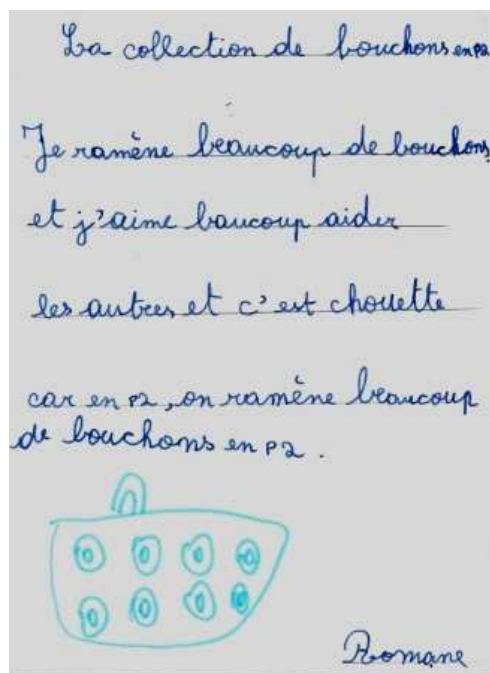 La collection de bouchons en P2
Je ramène beaucoup de bouchons
et j'aime baucoup aider
les autres et c'est chouette
car en P2, on ramène beaucoup
de bouchons en P2.
Romane